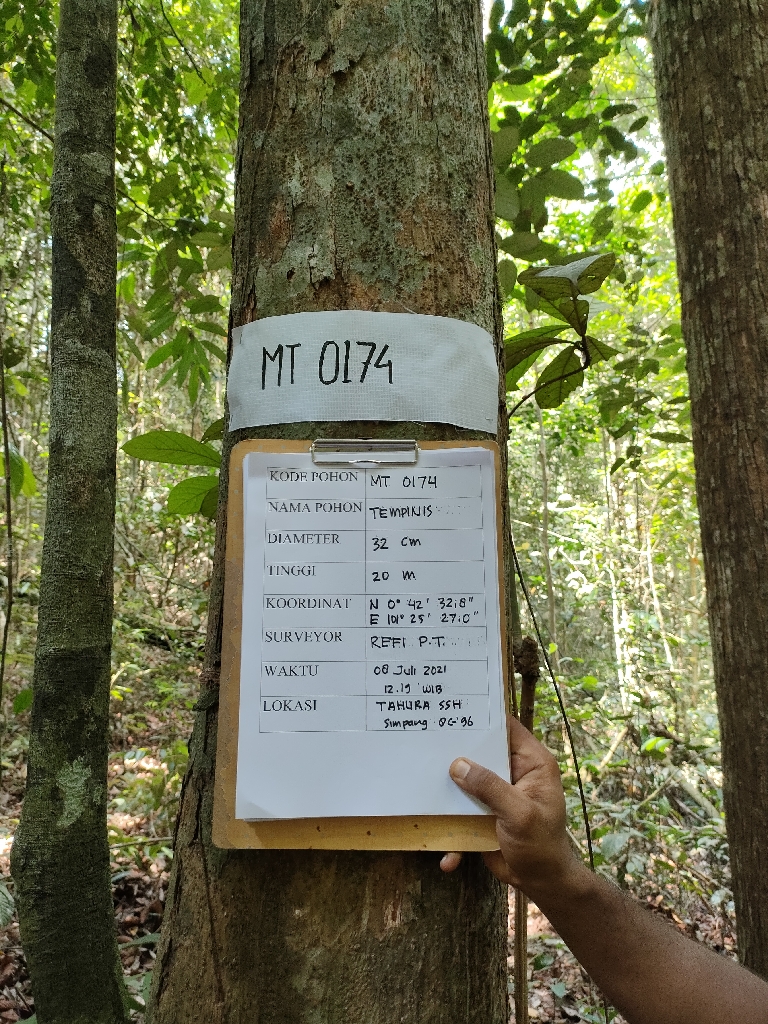 MT 0174
KODE POHON MT 0174
NAMA POHON TEMPINIS
DIAMETER 32 cm
TINGGI 20 m
KOORDINAT N 0° 42' 32.8"
E 101° 25' 27.0"
SURVEYOR REFI P.T.
WAKTU 08 Juli 2021
12.19 WIB
LOKASI TAHURA SSH
Simpang OG 96